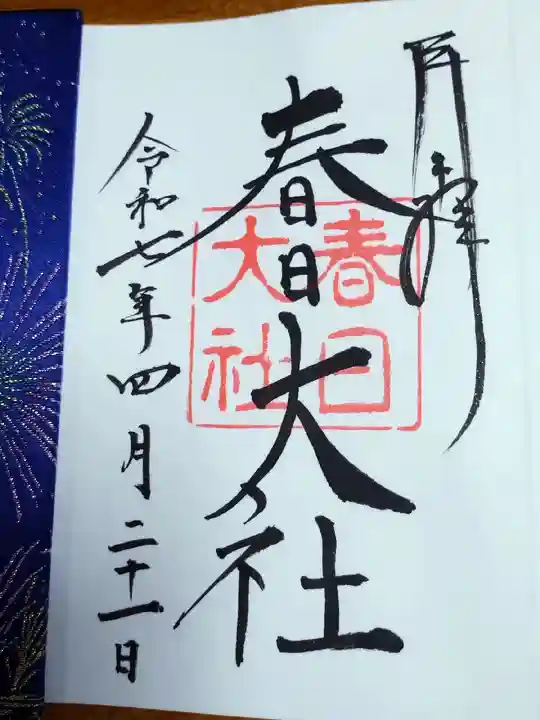 奉拝
春日大社
春日
大社
令和七年四月二十一日